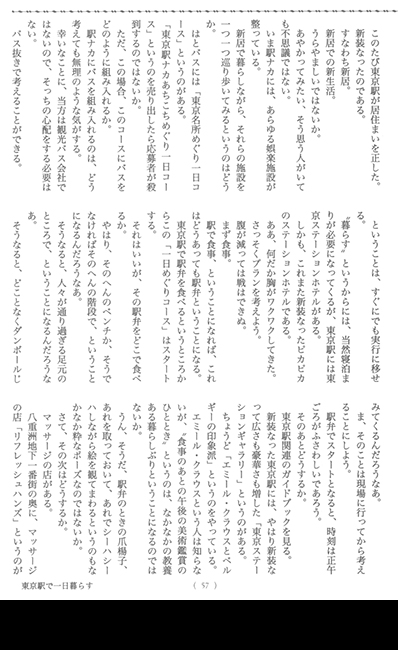 このたび東京駅が居住まいを正した。
新装なったのである。
すなわち新居。
新居での新生活。
うらやましいではないか。
あやかってみたい、そう思う人がいて
も不思議ではない。
いま駅ナカには、あらゆる娯楽施設が
整っている。
新居で暮らしながら、それらの施設を
一つ一つ巡り歩いてみるというのはどう
か。
はとバスには「東京名所めぐり一日コ
ース」というのがある。
「東京駅ナカあちこちめぐり一日コー
ス」というのを売り出したら応募者が殺
到するのではないか。
ただ、この場合、このコースにバスを
どのように組み入れるか。
駅ナカにバスを組み入れるのは、どう
考えても無理のような気がする。
幸いなことに、当方は観光バス会社で
はないので、そっちの心配をする必要は
ない。
バス抜きで考えることができる。
ということは、すぐにでも実行に移せ
る。
〝暮らす〟というからには、当然寝泊ま
りが必要になってくるが、東京駅には東
京ステーションホテルがある。
しかも、これまた新装なったピカピカ
のステーションホテルである。
ああ、何だか胸がワクワクしてきた。
さっそくプランを考えよう。
腹が減っては戦はできぬ。
まず食事。
駅で食事、ということになれば、これ
はどうあっても駅弁ということになる。
東京駅で駅弁を食べるというところか
らこの「一日めぐりコース」はスタート
する。
それはいいが、その駅弁をどこで食べ
るか。
やはり、そのへんのベンチか、そうで
なければそのへんの階段で、ということ
になるんだろうなあ。
そうなると、人々が通り過ぎる足元の
ところで、ということになるんだろうな
あ。
そうなると、どことなくダンボールじ
みてくるんだろうなあ。
ま、そのことは現場に行ってから考え
ることにしよう。
駅弁でスタートとなると、時刻は正午
ごろがふさわしいであろう。
そのあとどうするか。
東京駅関連のガイドブックを見る。
新装なった東京駅には、やはり新装な
って広さも豪華さも増した「東京ステー
ションギャラリー」というのがある。
ちょうど「エミール・クラウスとベル
ギーの印象派」というのをやっている。
エミール・クラウスという人は知らな
いが、〝食事のあとの午後の美術鑑賞の
ひととき〟というのは、なかなかの教養
ある暮らしぶりということになるのでは
ないか。
うん、そうだ、駅弁のときの爪楊子、
あれを取っておいて、あれでシーハシー
ハしながら絵を観てまわるというのもな
かなか粋なポーズなのではないか。
さて、その次はどうするか。
マッサージの店がある。
八重洲地下一番街の奥に、マッサージ
の店「リフレッシュハンズ」というのが
( 57 )
東京駅で一日暮らす